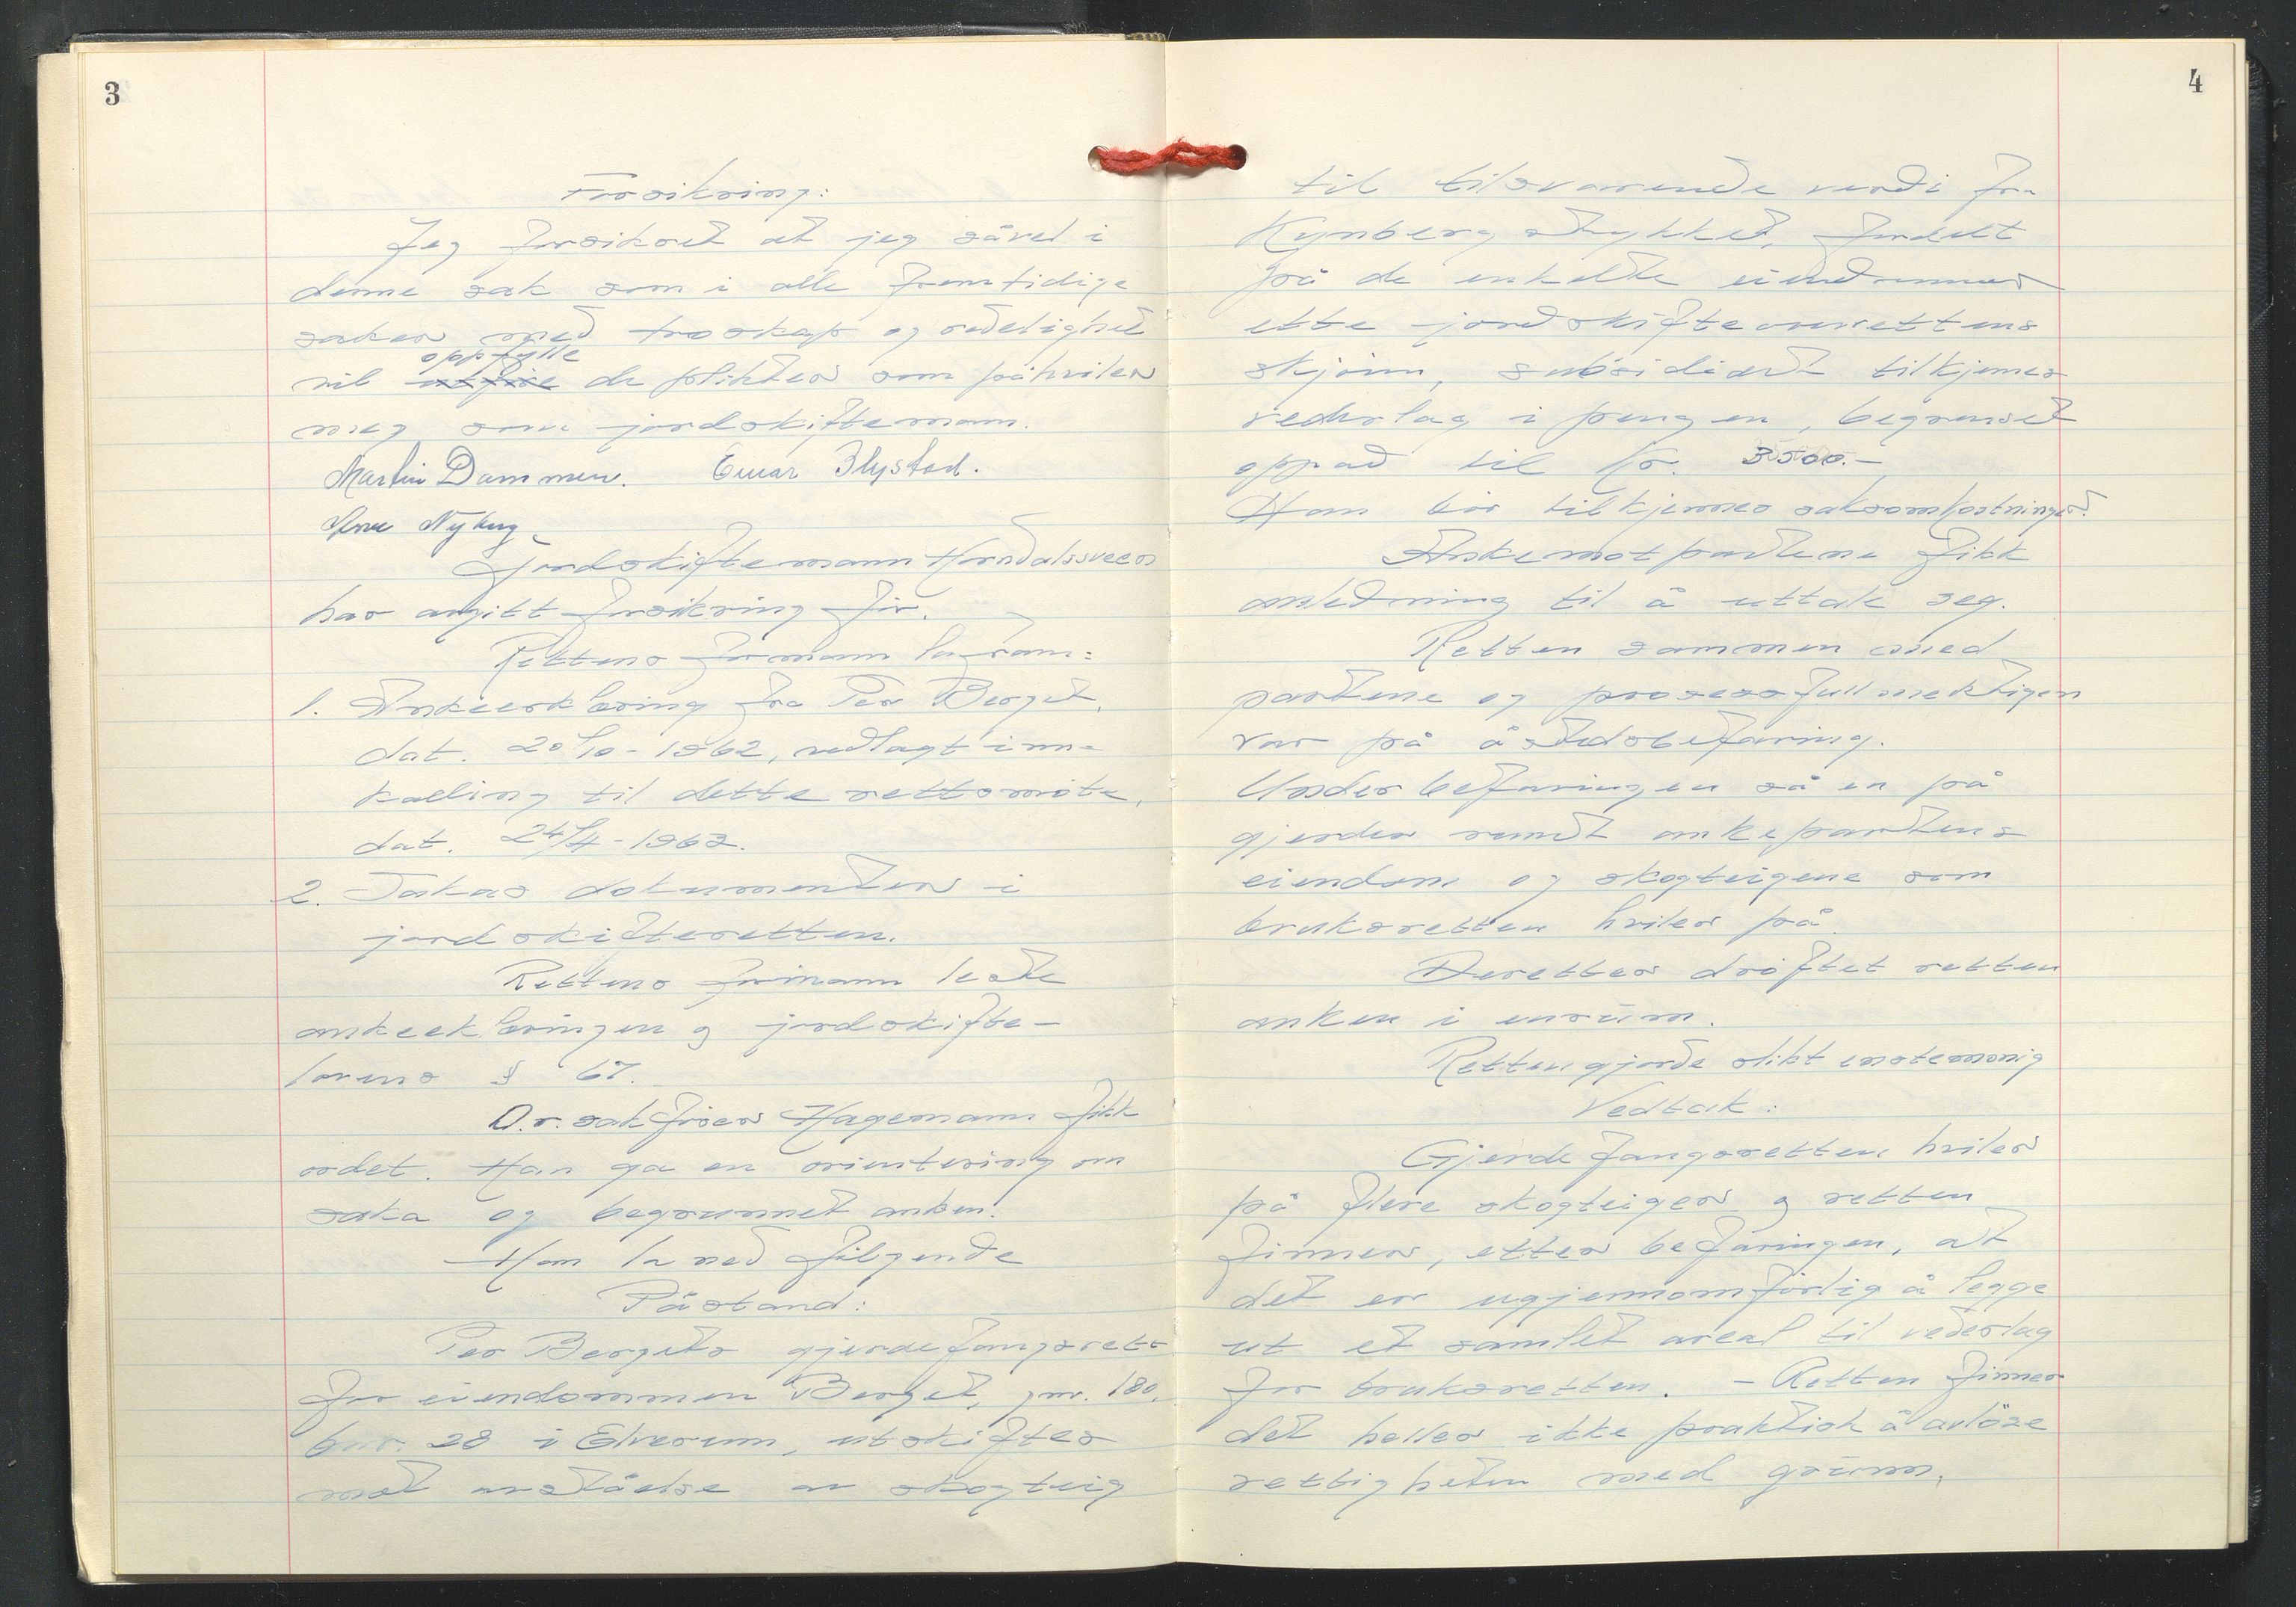 3
Forsikring:
Jeg forsikret at jeg såvel i
denne sak som i alle fremtidige
saker med troskap og redelighet
oppfylle
vil utføre de plikter som påhviler
meg som jordskiftemann.
Martin Dammen. Einar Blystad.
Arne Nyberg
Jordskiftemann Horndalssveen
har avgitt forsikring før.
Rettens formann la fram:
1. Ankeerklæring fra Per Berget,
dat. 20/10-1962, vedlagt inn-
kalling til dette rettsmøte,
dat. 24/4-1963.
2. Sakas dokumenter i
jordskifteretten.
Rettens formann leste
ankeeklæringen og jordskifte-
lovens § 67.
O.r.sakfører Hagemann fikk
ordet. Han ga en orientering om
saka og begrunnet anken.
Han la ned følgende
Påstand:
Per Bergets gjerdefangsrett
for eiendommen Berget, gnr. 180,
bnr. 28 i Elverum, utskiftes
mot avståelse av skogteig
4
til tilsvarende verdi fra
Kynbergstykket, fordelt
på de enkelte eiendommer
ette jordskifteoverettens
skjønn, subsidiært tilkjennes
vederlag i penger, begrenset
oppad til kr. 3500.-
Han bør tilkjennes saksomkostninger.
Ankemotpartene fikk
anledning til å uttale seg.
Retten sammen med
partene og prosessfullmektigen
var på åstedsbefaring.
Under befaringen så en på
gjerder rundt ankepartens
eiendom og skogteigene som
bruksretten hviler på.
Deretter drøftet retten
anken i enrum.
Retten gjorde slikt enstemmig
Vedtak:
Gjerdefangsretten hviler
på flere skogteiger og retten
finner, etter befaringen, at
det er ugjennomførlig å legge
ut et samlet areal til vederlag
for bruksretten. - Retten finner
det heller ikke praktisk å avløse
rettigheten med grunn.